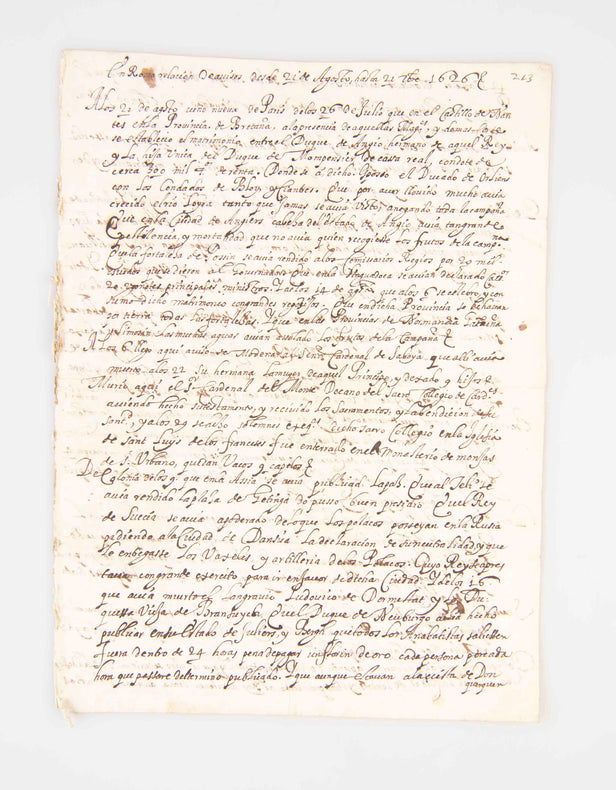 En Roma relacion de auisos, desde 21 de Agosto, hasta 21 7bre 1626 213
A los 21 de agto vino nueua de Paris de los 26 de Julio que en el Castillo de Nan
tes en la Prouincia de Bretaña, a la presencia de aquellas Mages, y damas
se establecio el matrimonio entre el Duque de Angio hermano de aquel Rey
y la hija Vnica del Duque de Mompensier de casa real, con dote de
cerca 300 mil de renta. Donde se a dicho Esposo el Ducado de Orliens
con los Condados de Bloys y Chambert. Que por auer llouido mucho auia
crecido el rio Loyra tanto que jamas se auia visto, anegando toda la campaña
Que en la Ciudad de Angiers cabesa del Estado de Angio auia tan grande
Pestilencia, y mortalidad que no auia quien recogiesse los frutos de la campa
Que la fortalesa de Possin se auia rendido a los Comisarios Regios por 20 mil
que se dieron al Gouernador. Que en la se auian declarado
20 principales ministros. Y a los 14 de que a los 6 se celebro, y con
sumo dicho matrimonio con grandes regosijos. Que en dicha Prouincia se
por tierra todas las fortalesas. Y que en las Prouincias de Normandia
y Limosin las muchas aguas auian dañado los frutos de la Campaña
A los 6 llego aqui auiso de Modena al Señr Cardenal de Saboya, que alli auia
muerto a los 22 su hermana la muger de aquel Principe, y dexado 9 hijos
Murio aqui el sr Cardenal del Monte Decano del Sacro Collegio de Card
auiendo hecho su testamento, y recciuido los Sacramentos, y la bendicion de su
Santd, y a los 29 se le hizo solemnes exeqs dicho Sacro Collegio en la Iglesia
de Sant Luys de los franceses fue enterrado en el Monasterio de monjas
de S. Vrbano, quedan Vacos 9 capelos
De Colonia de los 9 que en Assia se auia publicado la pas. Que al Teli se
auia rendido la plasa de Getinga do puso buen presidio. Que el Rey
de Suecia se auia apoderado de lo que los polacos posseyan en la Rusia
pidiendo a la Ciudad de Dansia la declaracion de su neutralidad, y que
le entregasse los Vaxeles, y artilleria de los Polacos. Cuyo Rey se apres
taua con grande exercito para ir en fauor de dicha Ciudad. Y de los 16
que auia muerto el Langrauio Ludouico de Dormestat y la Du
quessa Viexa de Bransuych. Que el Duque de Neuburgo auia hecho
publicar en su Estado de Juliers, y Bergh que todos los Anabatistas saliessen
fuera dentro de 24 horas pena de pagar un florin de oro cada persona por cada
hora que passare del termino publicado. Y que aunque estauan a la vista de Don